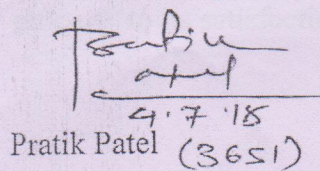 Pratik
Patel
4.7.18
Pratik Patel (3651)